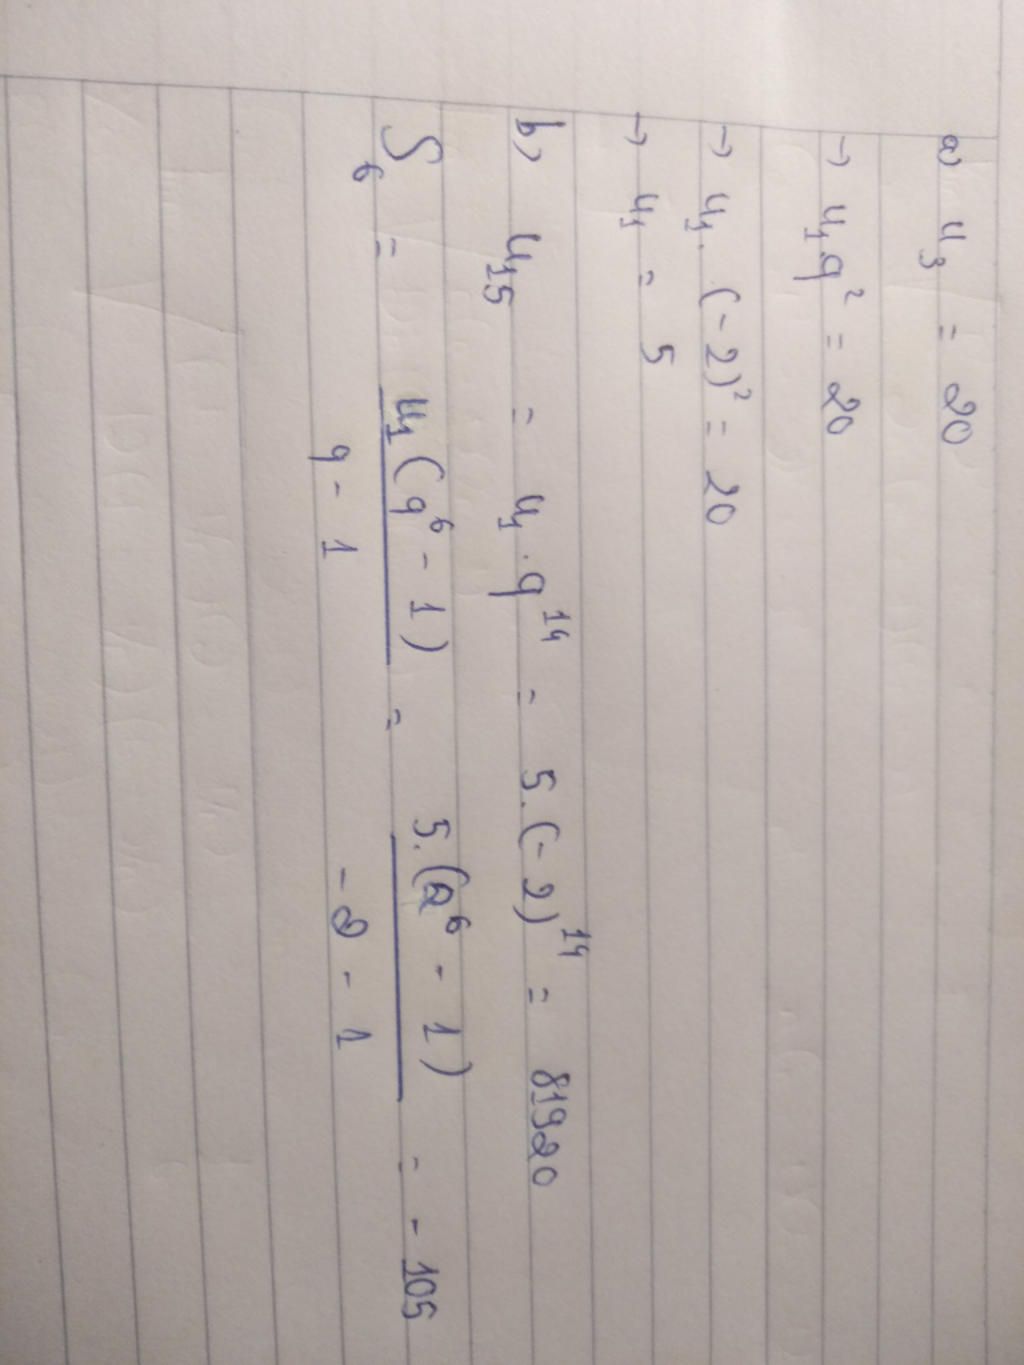 a) u₃ = 20
→ u₁q² = 20
→ u₁. (-2)² = 20
→ u₁ = 5
b) u₁₅ = u₁ . q¹⁴ = 5.(-2)¹⁴ = 81920
S₆ = u₁(q⁶ - 1) / q - 1 = 5.(2⁶ - 1) / -2 - 1 = -105